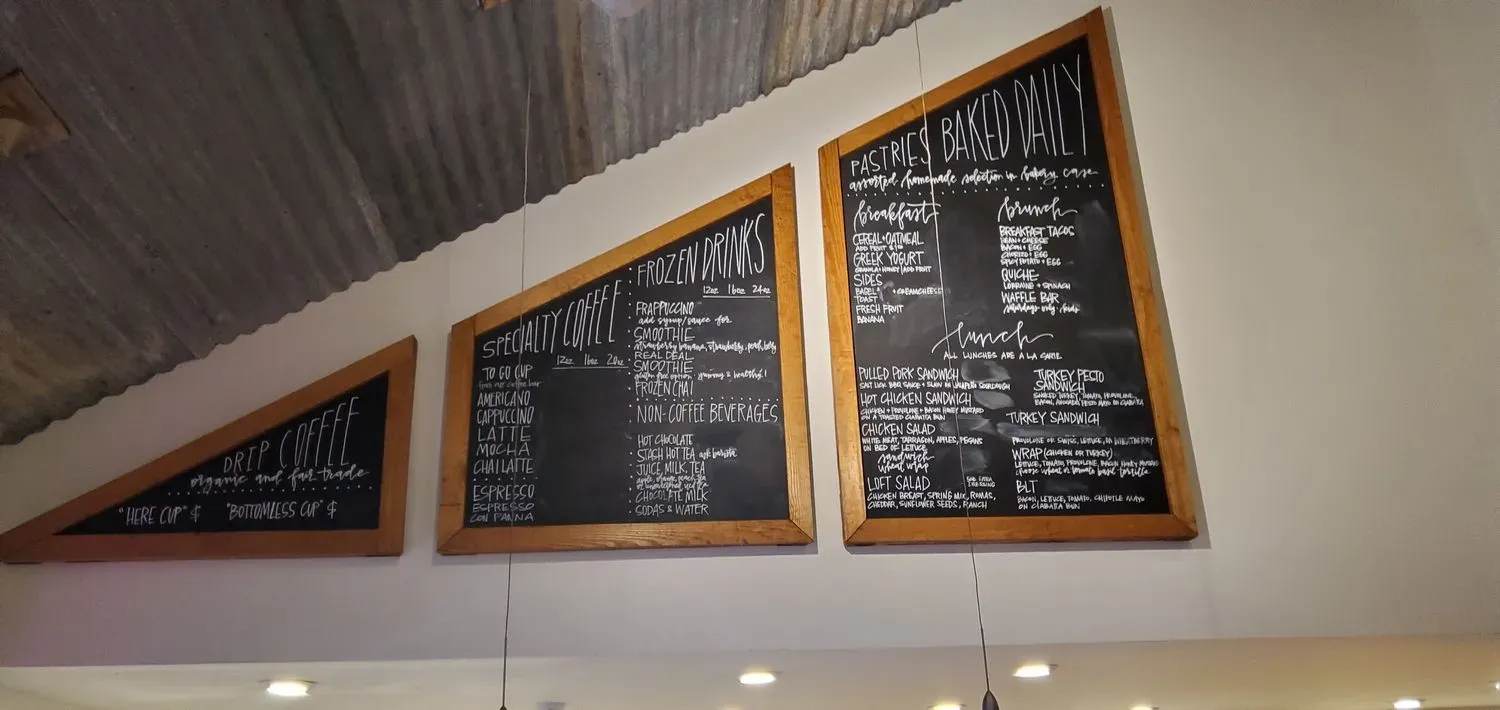 DRIP COFFEE
organic and fair-trade
"HERE CUP" $ "BOTTOMLESS CUP" $
SPECIALTY COFFEE
12oz 16oz 20oz
TO GO CUP
from our coffee bar
AMERICANO
CAPPUCCINO
LATTE
MOCHA
CHAI LATTE
ESPRESSO
ESPRESSO
CON PANNA
FROZEN DRINKS
12oz 16oz 24oz
FRAPPUCCINO
add syrup/sauce for
SMOOTHIE
strawberry banana, strawberry, peach, berry
REAL DEAL
SMOOTHIE
gluten free option yummy & healthy!
FROZEN CHAI
NON-COFFEE BEVERAGES
HOT CHOCOLATE
STASH HOT TEA ask barista
JUICE, MILK, TEA
apple, orange, peach tea
CHOCOLATE MILK
SODAS & WATER
PASTRIES BAKED DAILY
assorted homemade selection in bakery case
breakfast
CEREAL + OATMEAL
ADD FRUIT
GREEK YOGURT
GRANOLA + HONEY | ADD FRUIT
SIDES
BAGEL + CREAMCHEESE
TOAST
FRESH FRUIT
BANANA
brunch
BREAKFAST TACOS
BEAN + CHEESE
BACON + EGG
CHORIZO + EGG
SPICY POTATO + EGG
QUICHE
LORRAINE + SPINACH
WAFFLE BAR
saturdays only
lunch
ALL LUNCHES ARE A LA CARTE
PULLED PORK SANDWICH
SALT LICK BBQ SAUCE + SLAW ON JALAPEÑO SOURDOUGH
HOT CHICKEN SANDWICH
CHICKEN + PROVOLONE + BACON HONEY MUSTARD
ON A TOASTED CIABATTA BUN
CHICKEN SALAD
WHITE MEAT, TARRAGON, APPLES, PECANS
ON BED OF LETTUCE
sandwich
wheat wrap
LOFT SALAD
DRESSING
CHICKEN BREAST, SPRING MIX, ROMAS,
CHEDDAR, SUNFLOWER SEEDS, RANCH
TURKEY PESTO
SANDWICH
SMOKED TURKEY, TOMATO, PROVOLONE,
BACON, AVOCADO, PESTO MAYO ON CIABATTA
TURKEY SANDWICH
PROVOLONE OR SWISS, LETTUCE, ON WHEATBERRY
WRAP (CHICKEN OR TURKEY)
LETTUCE, TOMATO, PROVOLONE, BACON HONEY MUSTARD
choose wheat or tomato basil tortilla
BLT
BACON, LETTUCE, TOMATO, CHIPOTLE MAYO
ON CIABATTA BUN